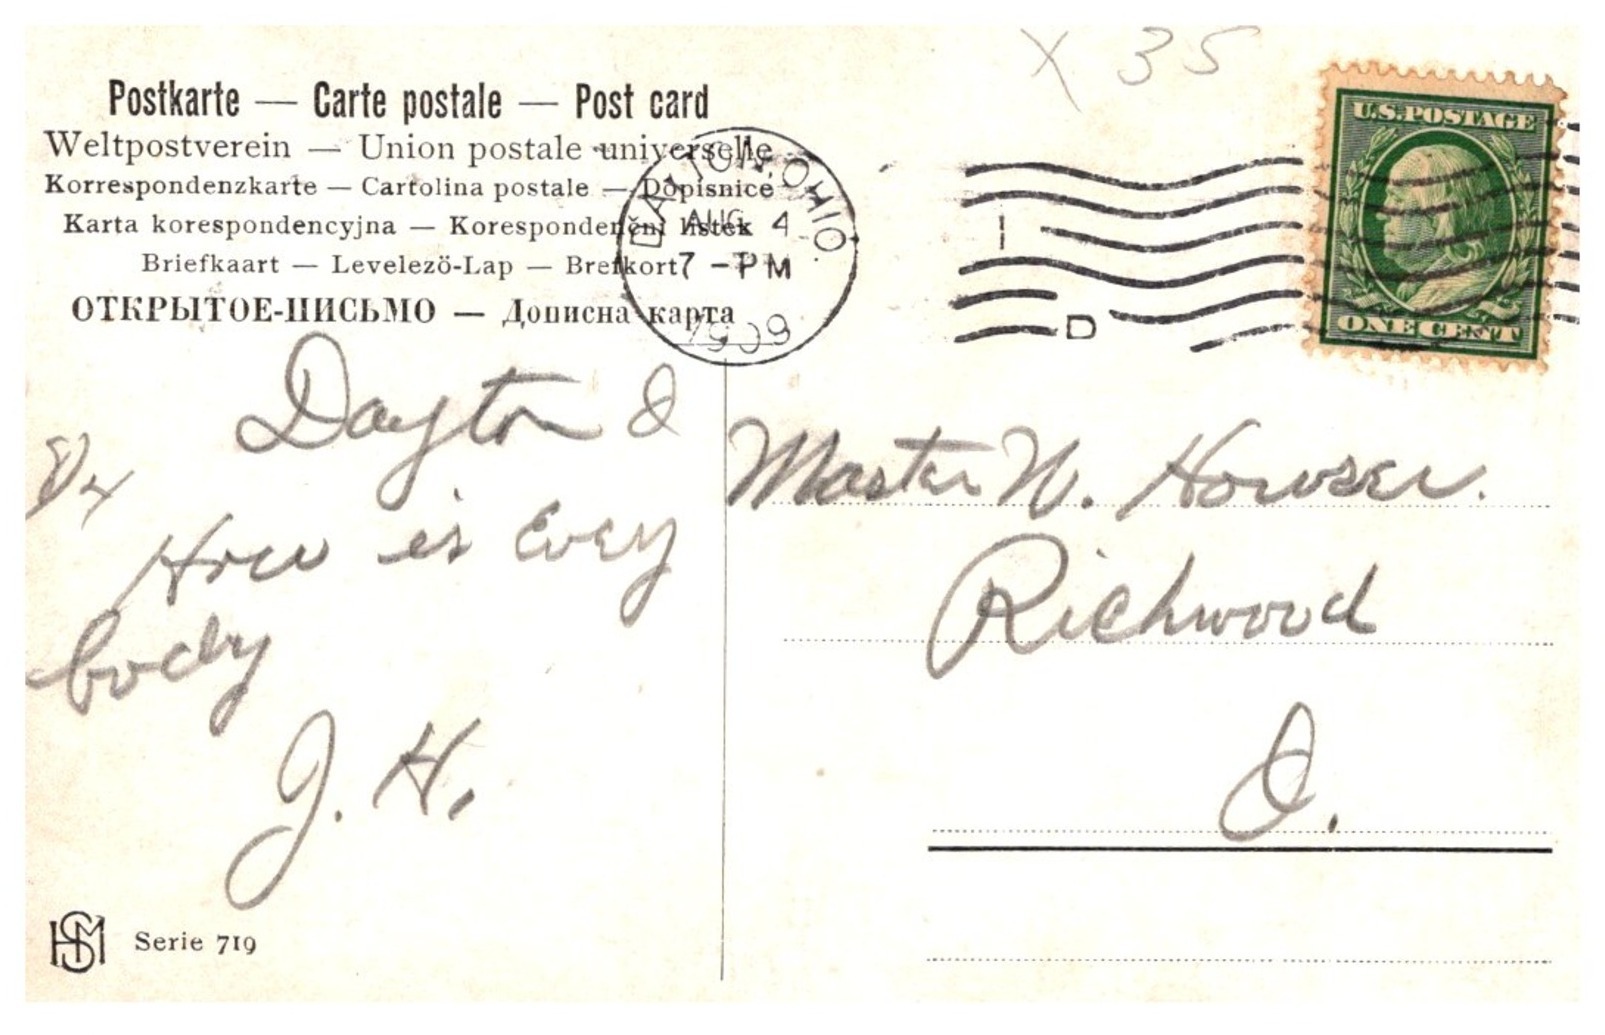 X 35
Postkarte — Carte postale — Post card
Weltpostverein — Union postale universelle
Korrespondenzkarte — Cartolina postale — Dopisnice
Karta korespondencyjna — Korespondenční lístek
Briefkaart — Levelező-Lap — Brefkort
ОТКРЫТОЕ-ПИСЬМО — Дописна карта
DAYTON, OHIO.
AUG 4
7-PM
1909
1
D
U.S. POSTAGE
ONE CENT
Dayton O
8/4
How is Every
body
J. H.
Master W. Howser.
Richwood
O.
HSM
Serie 719